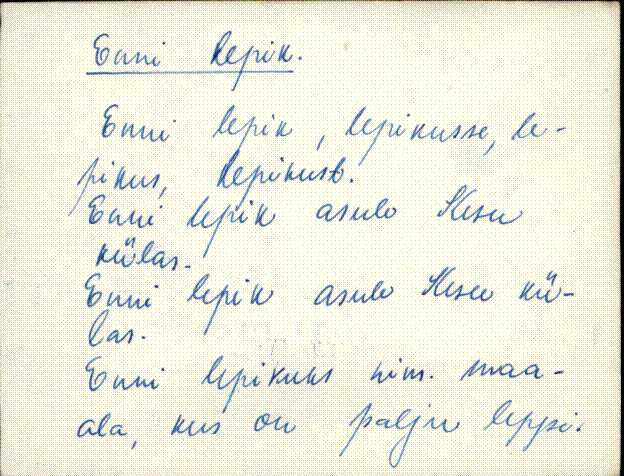 Enni lepik.
Enni lepik, lepikusse, le-
pikus, lepikust.
Enni lepik asub Kesu
külas.
Enni lepik asub Kesu kü-
las.
Enni lepikuks nim. maa-
ala, kus on palju leppi.